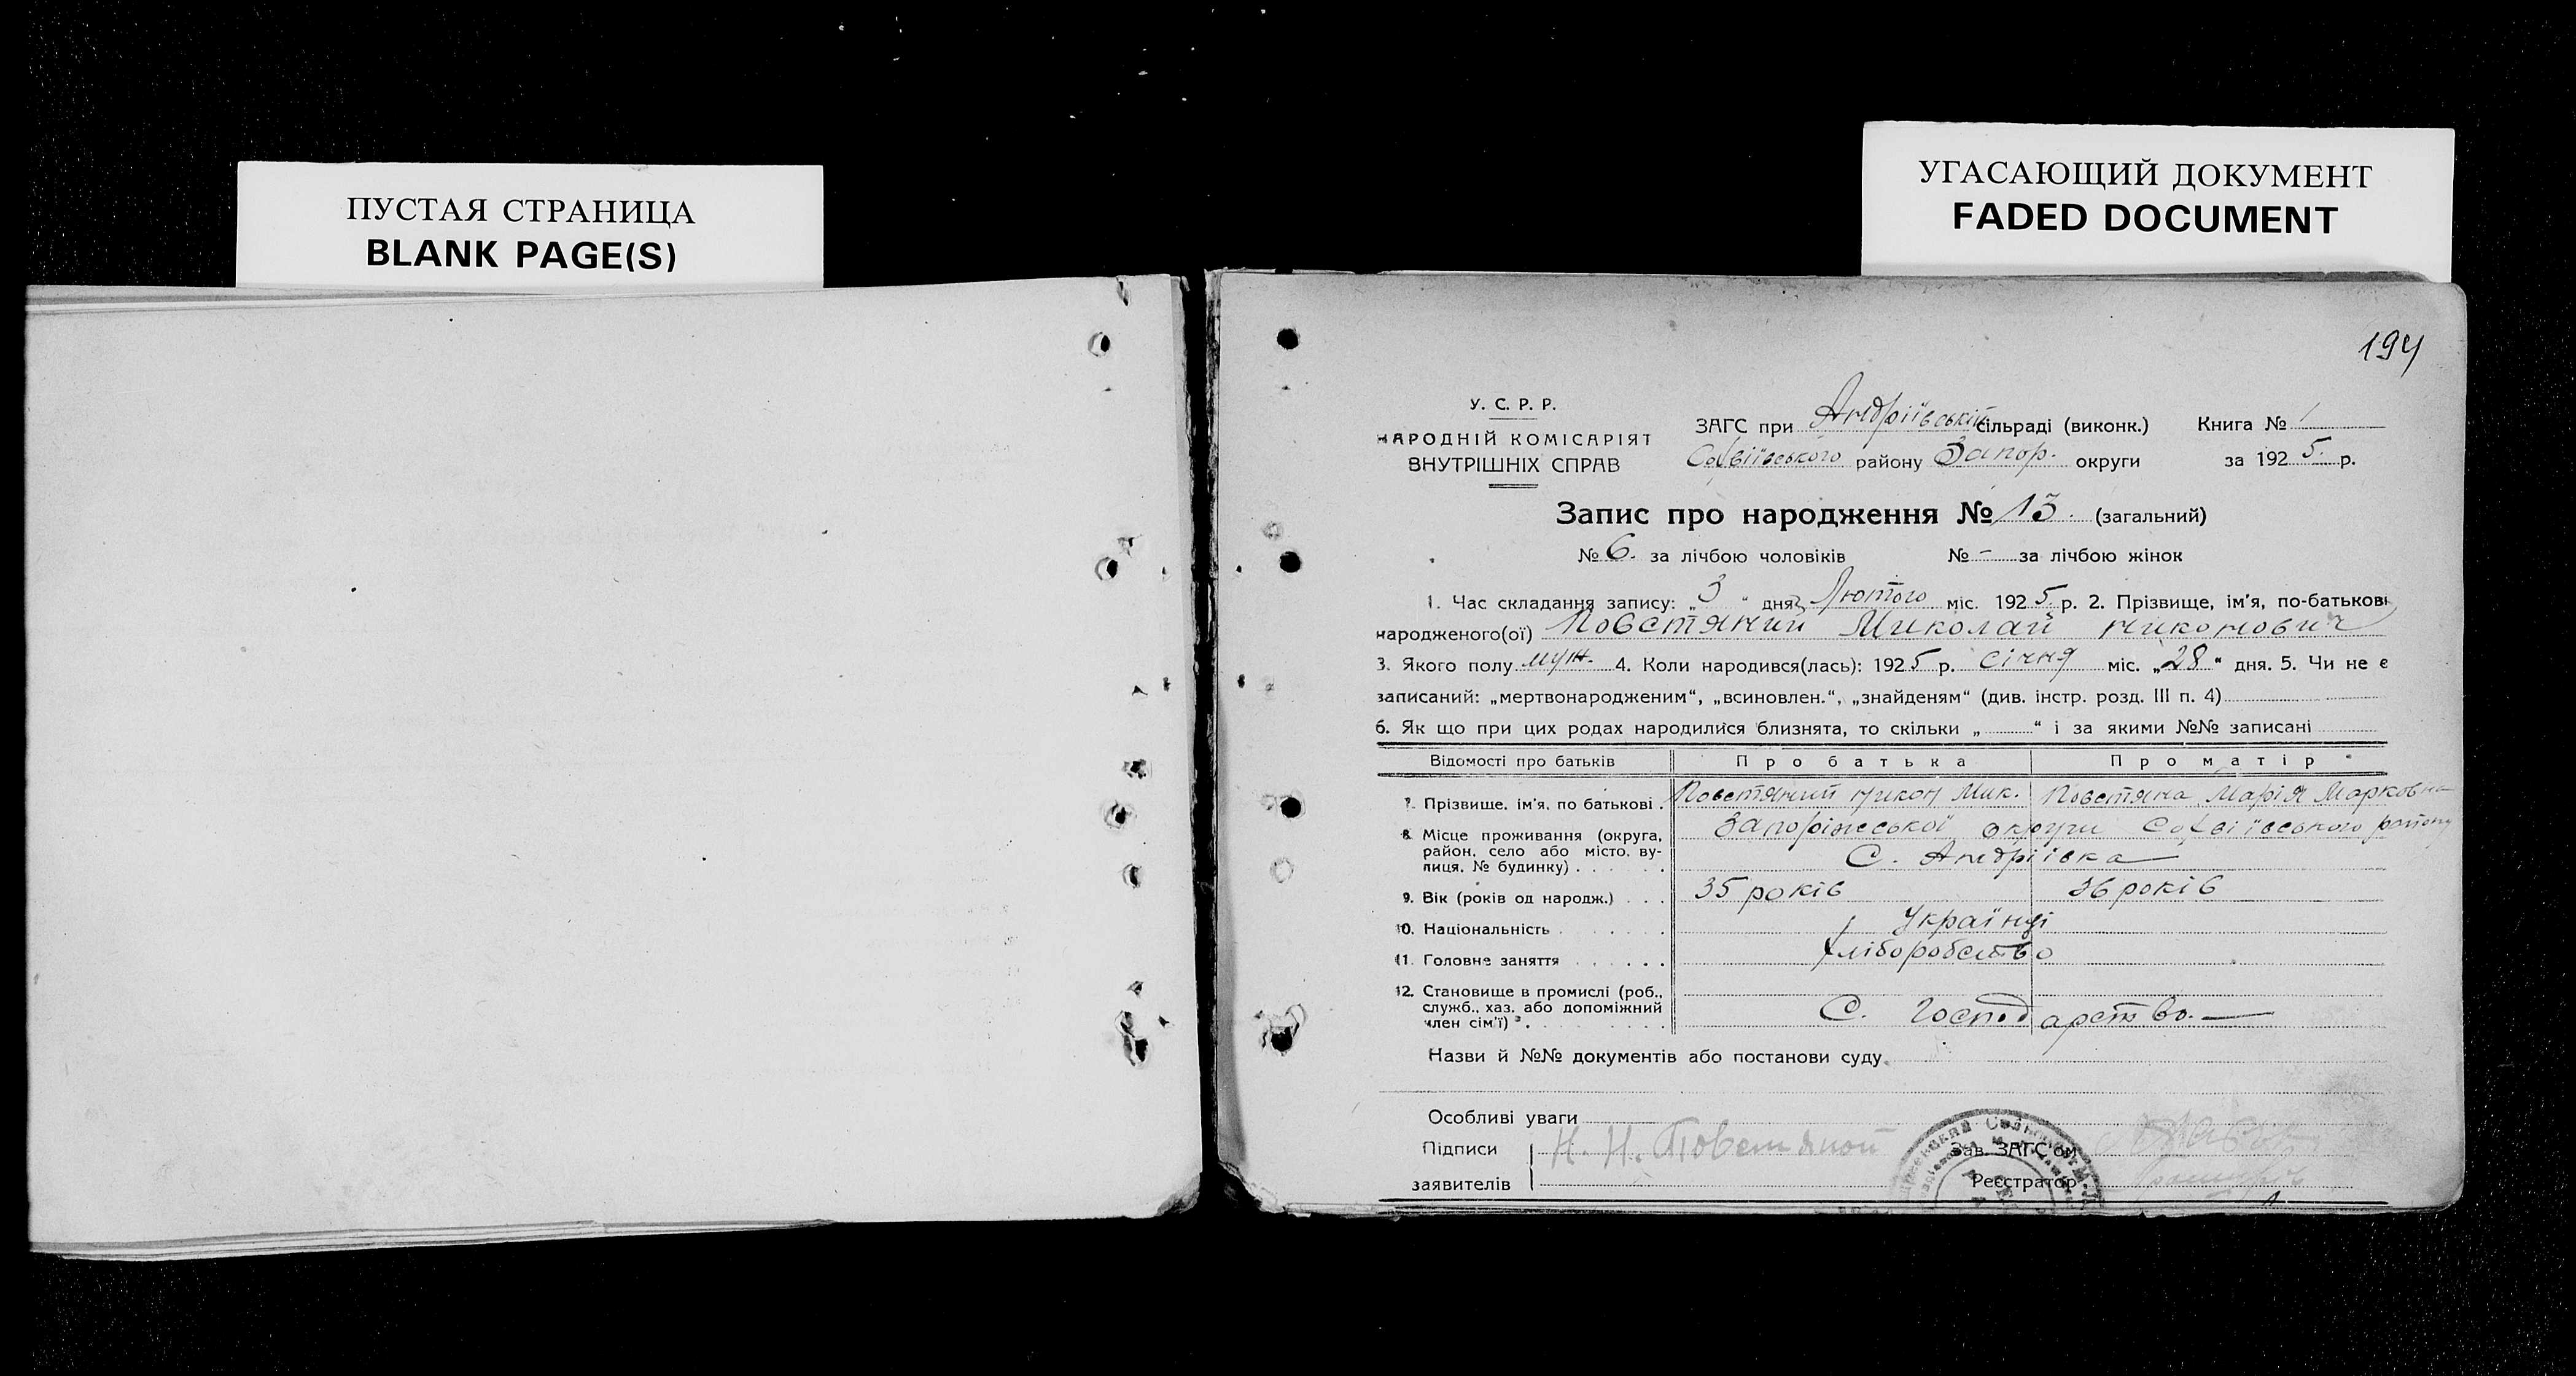 ПУСТАЯ СТРАНИЦА
BLANK PAGE(S)
УГАСАЮЩИЙ ДОКУМЕНТ
FADED DOCUMENT
194
У. С. Р. Р.
НАРОДНІЙ КОМІСАРІЯТ
ВНУТРІШНІХ СПРАВ
ЗАГС при Андріївській сільраді (виконк.) Книга № 1
Софіївського району Запор. округи за 1925 р.
Запис про народження № 13. (загальний)
№ 6. за лічбою чоловіків № - за лічбою жінок
1. Час складання запису: „3" дня Лютого міс. 1925 р. 2. Прізвище, ім'я, по-батькові
народженого(ої) Повстяний Миколай Никонович
3. Якого полу муж. 4. Коли народився(лась): 1925 р. Січня міс. „28" дня. 5. Чи не є
записаний: „мертвонародженим", „всиновлен.", „знайденям" (див. інстр. розд. III п. 4)
6. Як що при цих родах народилися близнята, то скільки „ " і за якими №№ записані
Відомості про батьків Про батька Про матір
7. Прізвище, ім'я, по батькові. Повстяний Никон Мик. Повстяна Марія Марковна
8. Місце проживання (округа, район, село або місто, вулиця, № будинку) Запоріжської округи Софіївського району
С. Андріївка
9. Вік (років од народж.) 35 років 36 років
10. Національність Українці
11. Головне заняття Хліборобство
12. Становище в промислі (роб., служб., хаз. або допоміжний член сім'ї) С. Господарство.
Назви й №№ документів або постанови суду
Особливі уваги
Підписи Н. Н. Повстяной Зав. ЗАГС'ом
заявителів Реєстратор